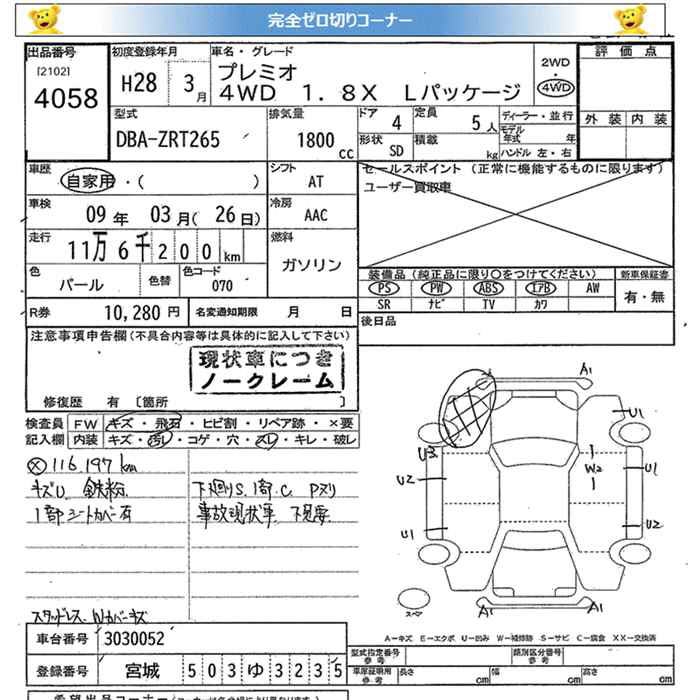 完全ゼロ切りコーナー
出品番号
[2102]
4058
初度登録年月
H28 3月
車名・グレード
プレミオ
4WD 1.8X Lパッケージ
2WD
・
4WD
評価点
外装 内装
型式
DBA-ZRT265
排気量
1800 cc
ドア 4
定員 5人
形状 SD
積載 kg
ディーラー・並行
モデル年式 年
ハンドル 左・右
車歴
自家用・( )
シフト
AT
車検
09年 03月(26日)
冷房
AAC
走行
11万6千200km
燃料
ガソリン
色
パール
色替
色コード
070
R券 10,280円
名変通知期限 月 日
セールスポイント (正常に機能するものに限ります)
ユーザー買取車
装備品(純正品に限り〇をつけてください)
PS PW ABS エアB AW
SR ナビ TV カワ
新車保証書
有・無
後日品
注意事項申告欄(不具合内容等は具体的に記入して下さい)
現状車につき
ノークレーム
修復歴 有〔箇所 〕
検査員記入欄
FW キズ・飛石・ヒビ割・リペア跡・×要
内装 キズ・汚レ・コゲ・穴・スレ・キレ・破レ
ⓧ116,197km
キズU 鉄粉
1部シートカバー有
下廻りS、1部C Pヌリ
事故現状車 下見要
スタッドレス Wカバーキズ
A1
U1
U3
U2
W2
U1
U1
U2
A1
A1
スペア
A-キズ E-エクボ U-凹み W-補修跡 S-サビ C-腐食 XX-交換済
車台番号 3030052
登録番号 宮城 503ゆ3235
型式指定番号 参考
類別区分番号 参考
車庫証明用 参考
長さ 幅 高さ
cm cm cm
希望出品コーナー